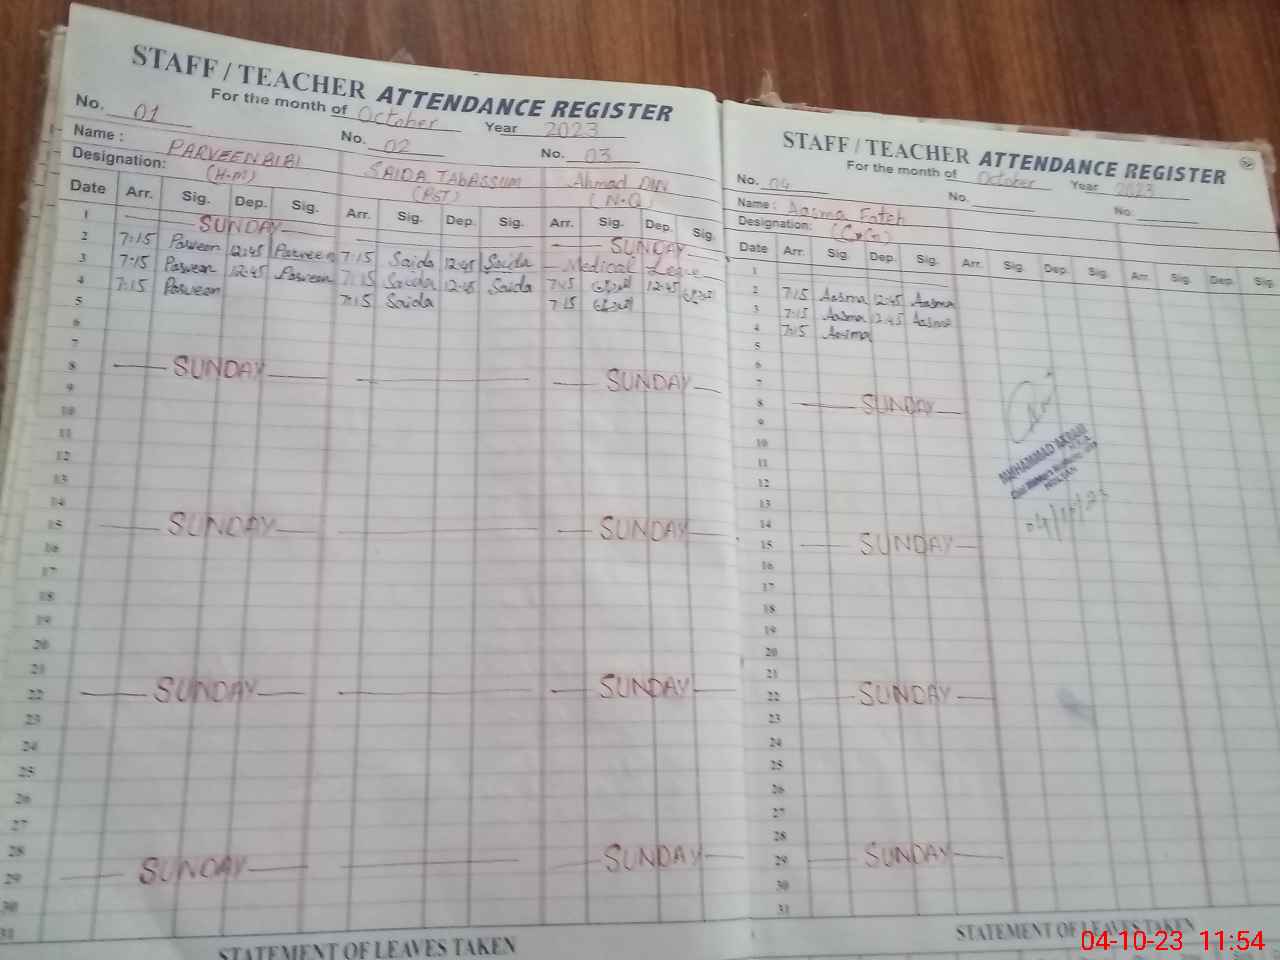 STAFF / TEACHER ATTENDANCE REGISTER
For the month of October Year 2023
No. 01 No. 02 No. 03
Name : PARVEEN BIBI SAIDA TABASSUM Ahmad DIN
Designation: (H.M) (PST) (N.Q)
Date Arr. Sig. Dep. Sig. Arr. Sig. Dep. Sig. Arr. Sig. Dep. Sig.
1 SUNDAY SUNDAY
2 7:15 Parveen 12:45 Parveen 7:15 Saida 12:45 Saida Medical
3 7:15 Parveen 12:45 Parveen 7:15 Saida 12:45 Saida 7:15 12:45
4 7:15 Parveen 7:15 Saida 7:15
5
6
7
8 SUNDAY SUNDAY
9
10
11
12
13
14
15 SUNDAY SUNDAY
16
17
18
19
20
21
22 SUNDAY SUNDAY
23
24
25
26
27
28
29 SUNDAY SUNDAY
30
31
STATEMENT OF LEAVES TAKEN
STAFF / TEACHER ATTENDANCE REGISTER
For the month of October Year 2023
No. 04 No. No.
Name : Aasma Fateh
Designation:
Date Arr. Sig. Dep. Sig. Arr. Sig. Dep. Sig. Arr. Sig. Dep. Sig.
1
2 7:15 Aasma 12:45 Aasma
3 7:15 Aasma 12:45 Aasma
4 7:15 Aasma
5
6
7
8 SUNDAY
9
10
11
12
13
14
15 SUNDAY
16
17
18
19
20
21
22 SUNDAY
23
24
25
26
27
28
29 SUNDAY
30
31
MUHAMMAD AKRAM
STATEMENT OF LEAVES TAKEN
04-10-23 11:54